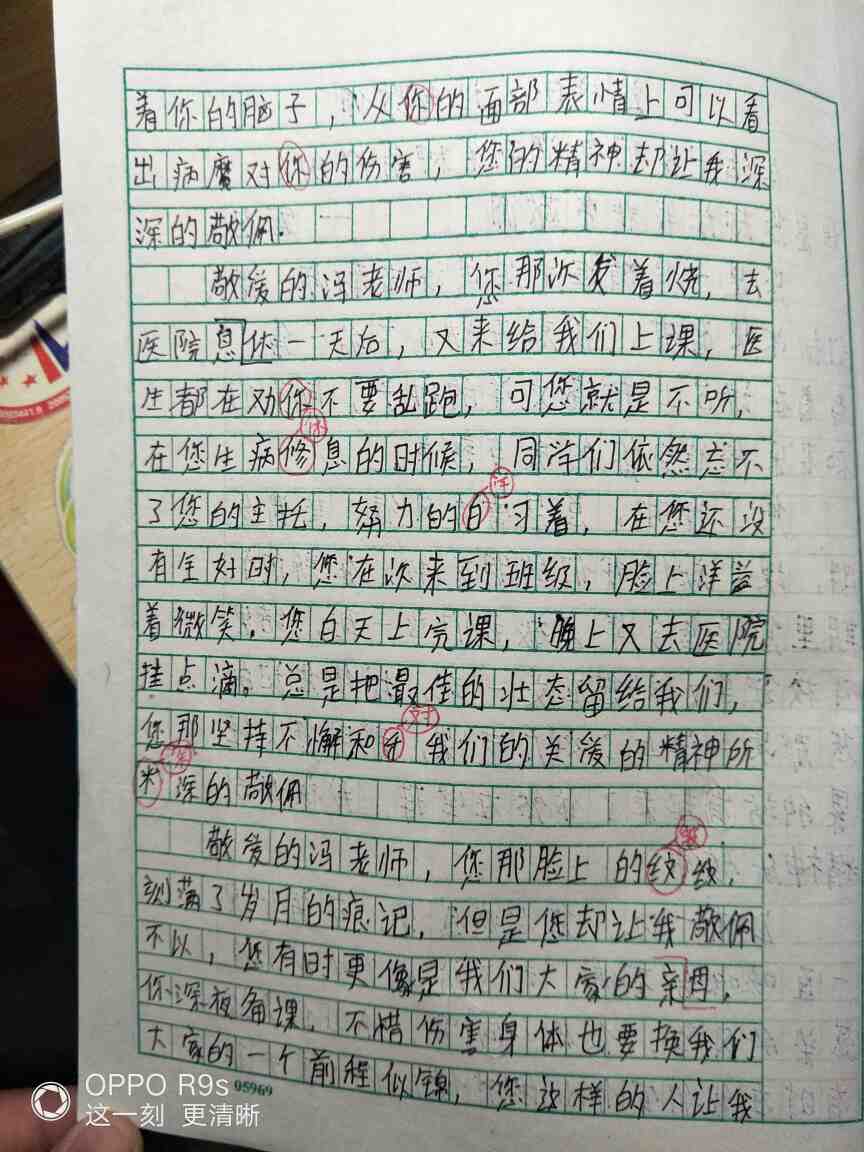 着你的脑子，从你的面部表情上可以看
出病魔对你的伤害，您的精神却让我深
深的敬佩.
敬爱的冯老师，您那次发着烧，去
医院息休一天后，又来给我们上课，医
生都在劝你不要乱跑，可您就是不听，
休
在您生病修息的时候，同学们依然忘不
了您的主托，努力的自习着，在您还没
有全好时，您在次来到班级，脸上洋益
着微笑。您白天上完课，晚上又去医院
挂点滴。总是把最佳的壮态留给我们，
对
您那坚持不懈和我们的关爱的精神所
深的敬佩
敬爱的冯老师，您那脸上的纹，
刻满了岁月的痕记，但是您却让我敬佩
不以，您有时更像是我们大家的亲母，
你深夜备课，不惜伤害身体也要换我们
大家的一个前程似锦，您这样的人让我
OPPO R9s
05969
这一刻 更清晰